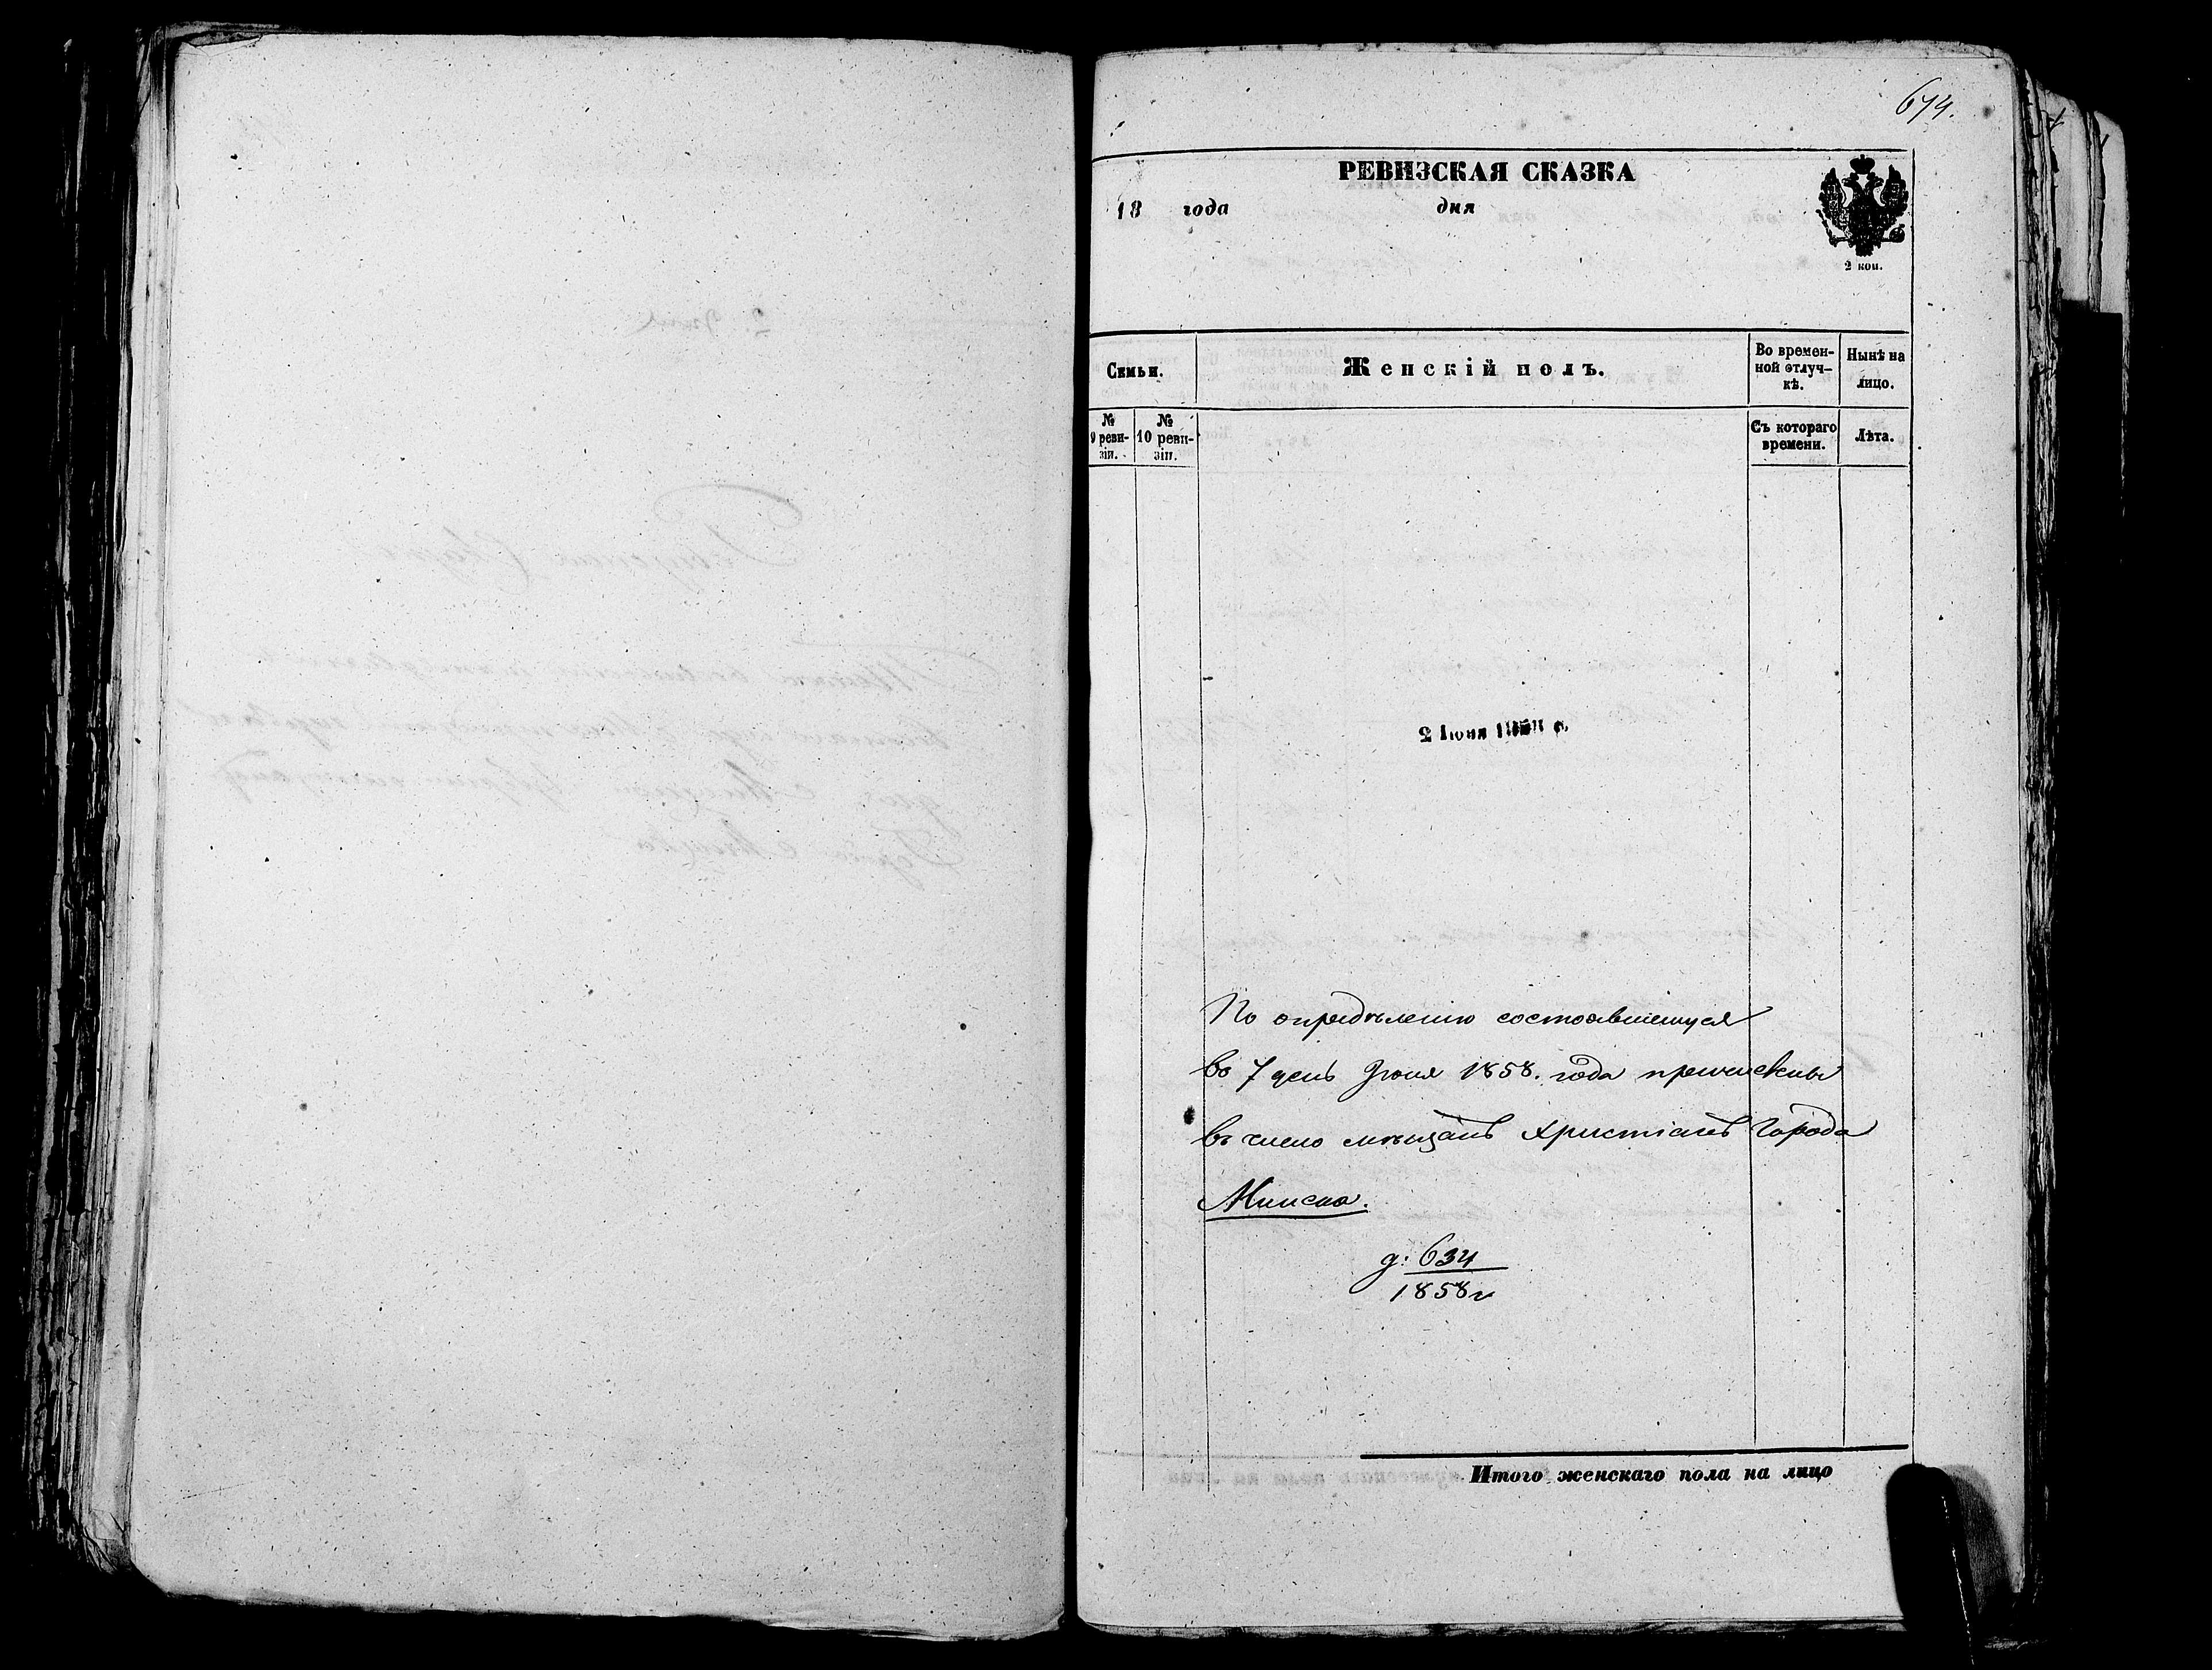 674.
РЕВИЗСКАЯ СКАЗКА
18 года дня
2 коп.
Семьи.
Женскій полъ.
Во времен-
ной отлуч-
кѣ.
Нынѣ на
лицо.
№
9 реви-
зіи.
№
10 реви-
зіи.
Съ котораго
времени.
Лѣта.
2 Іюня 1858 г.
По опредѣленію состоявшемуся
во 7 день Іюня 1858. года причислены
въ число мѣщанъ Христіанъ Города
Минска.
д: 634
1858 г
Итого женскаго пола на лицо